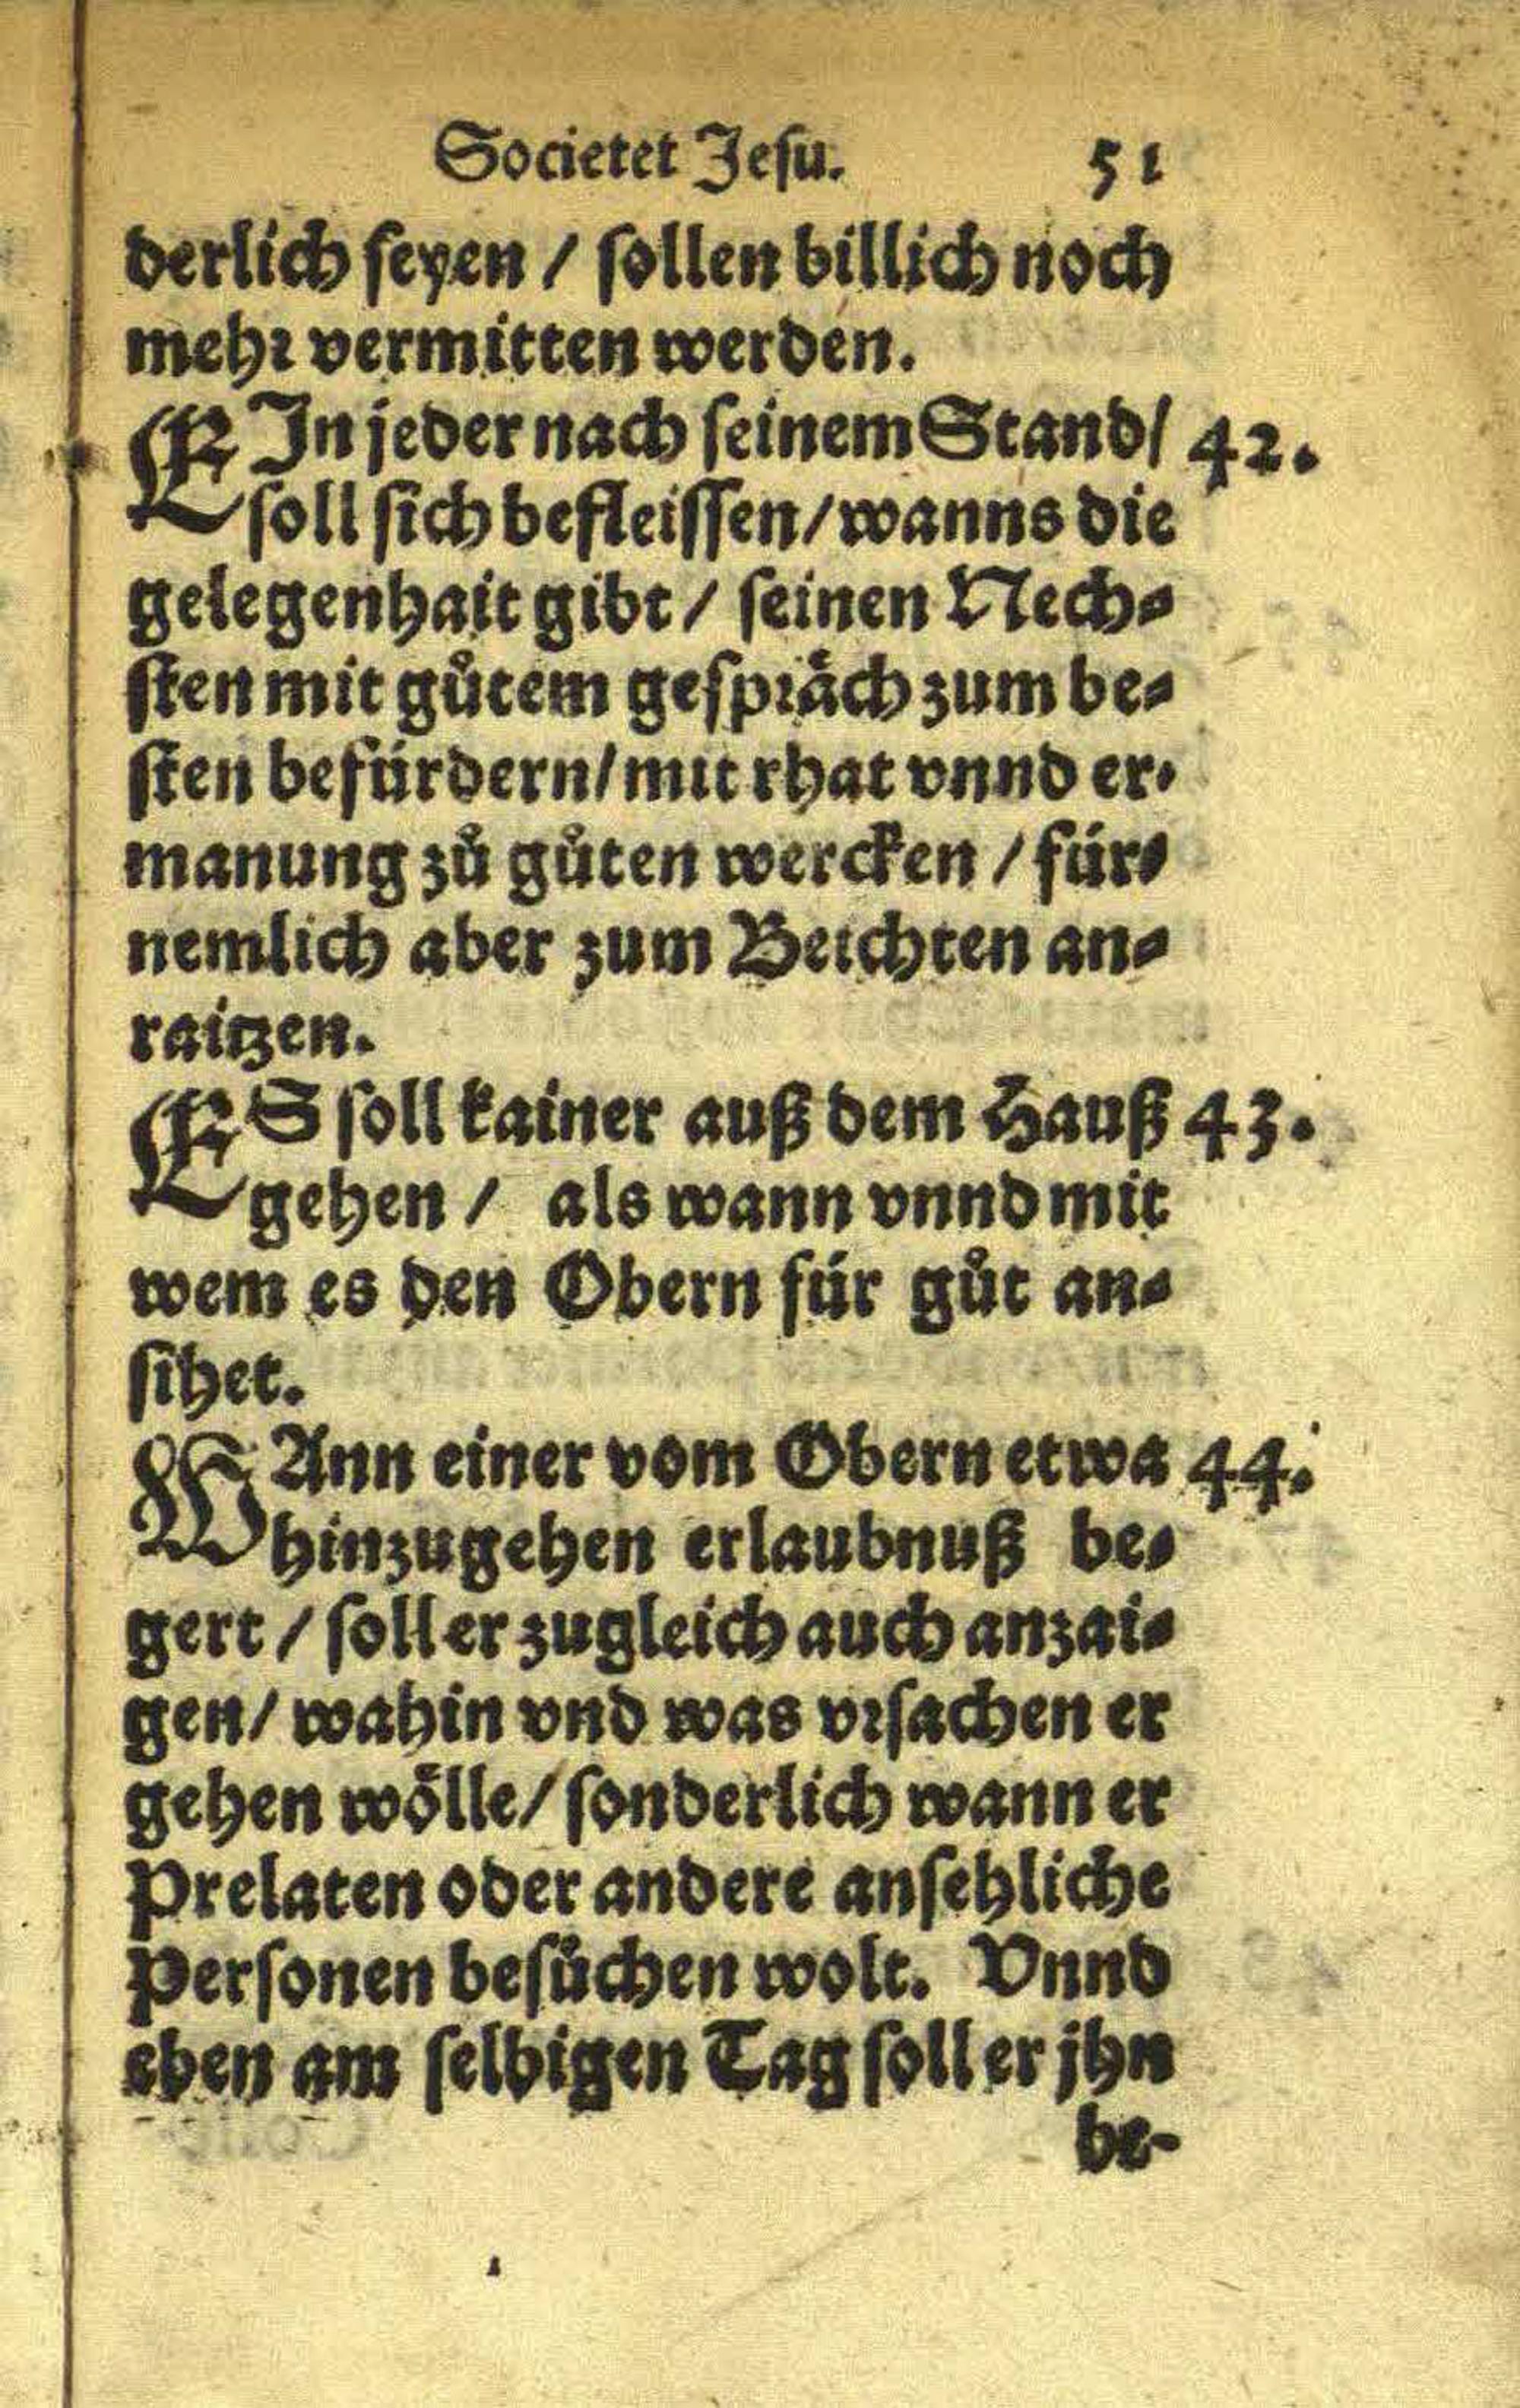 Societet Jesu. 51
derlich seyen / sollen billich noch
mehr vermitten werden.
EIn jeder nach seinem Stand / 42.
soll sich befleissen / wanns die
gelegenhait gibt / seinen Nech⸗
sten mit gůtem gespräch zum be⸗
sten befürdern / mit rhat vnnd er⸗
manung zů gůten wercken / für⸗
nemlich aber zum Beichten an⸗
raitzen.
ES soll kainer auß dem Hauß 43.
gehen / als wann vnnd mit
wem es den Obern für gůt an⸗
sihet.
WAnn einer vom Obern etwa 44.
hinzugehen erlaubnuß be⸗
gert / soll er zugleich auch anzai⸗
gen / wahin vnd was vrsachen er
gehen wölle / sonderlich wann er
Prelaten oder andere ansehliche
Personen besůchen wolt. Vnnd
eben am selbigen Tag soll er jhn
be-